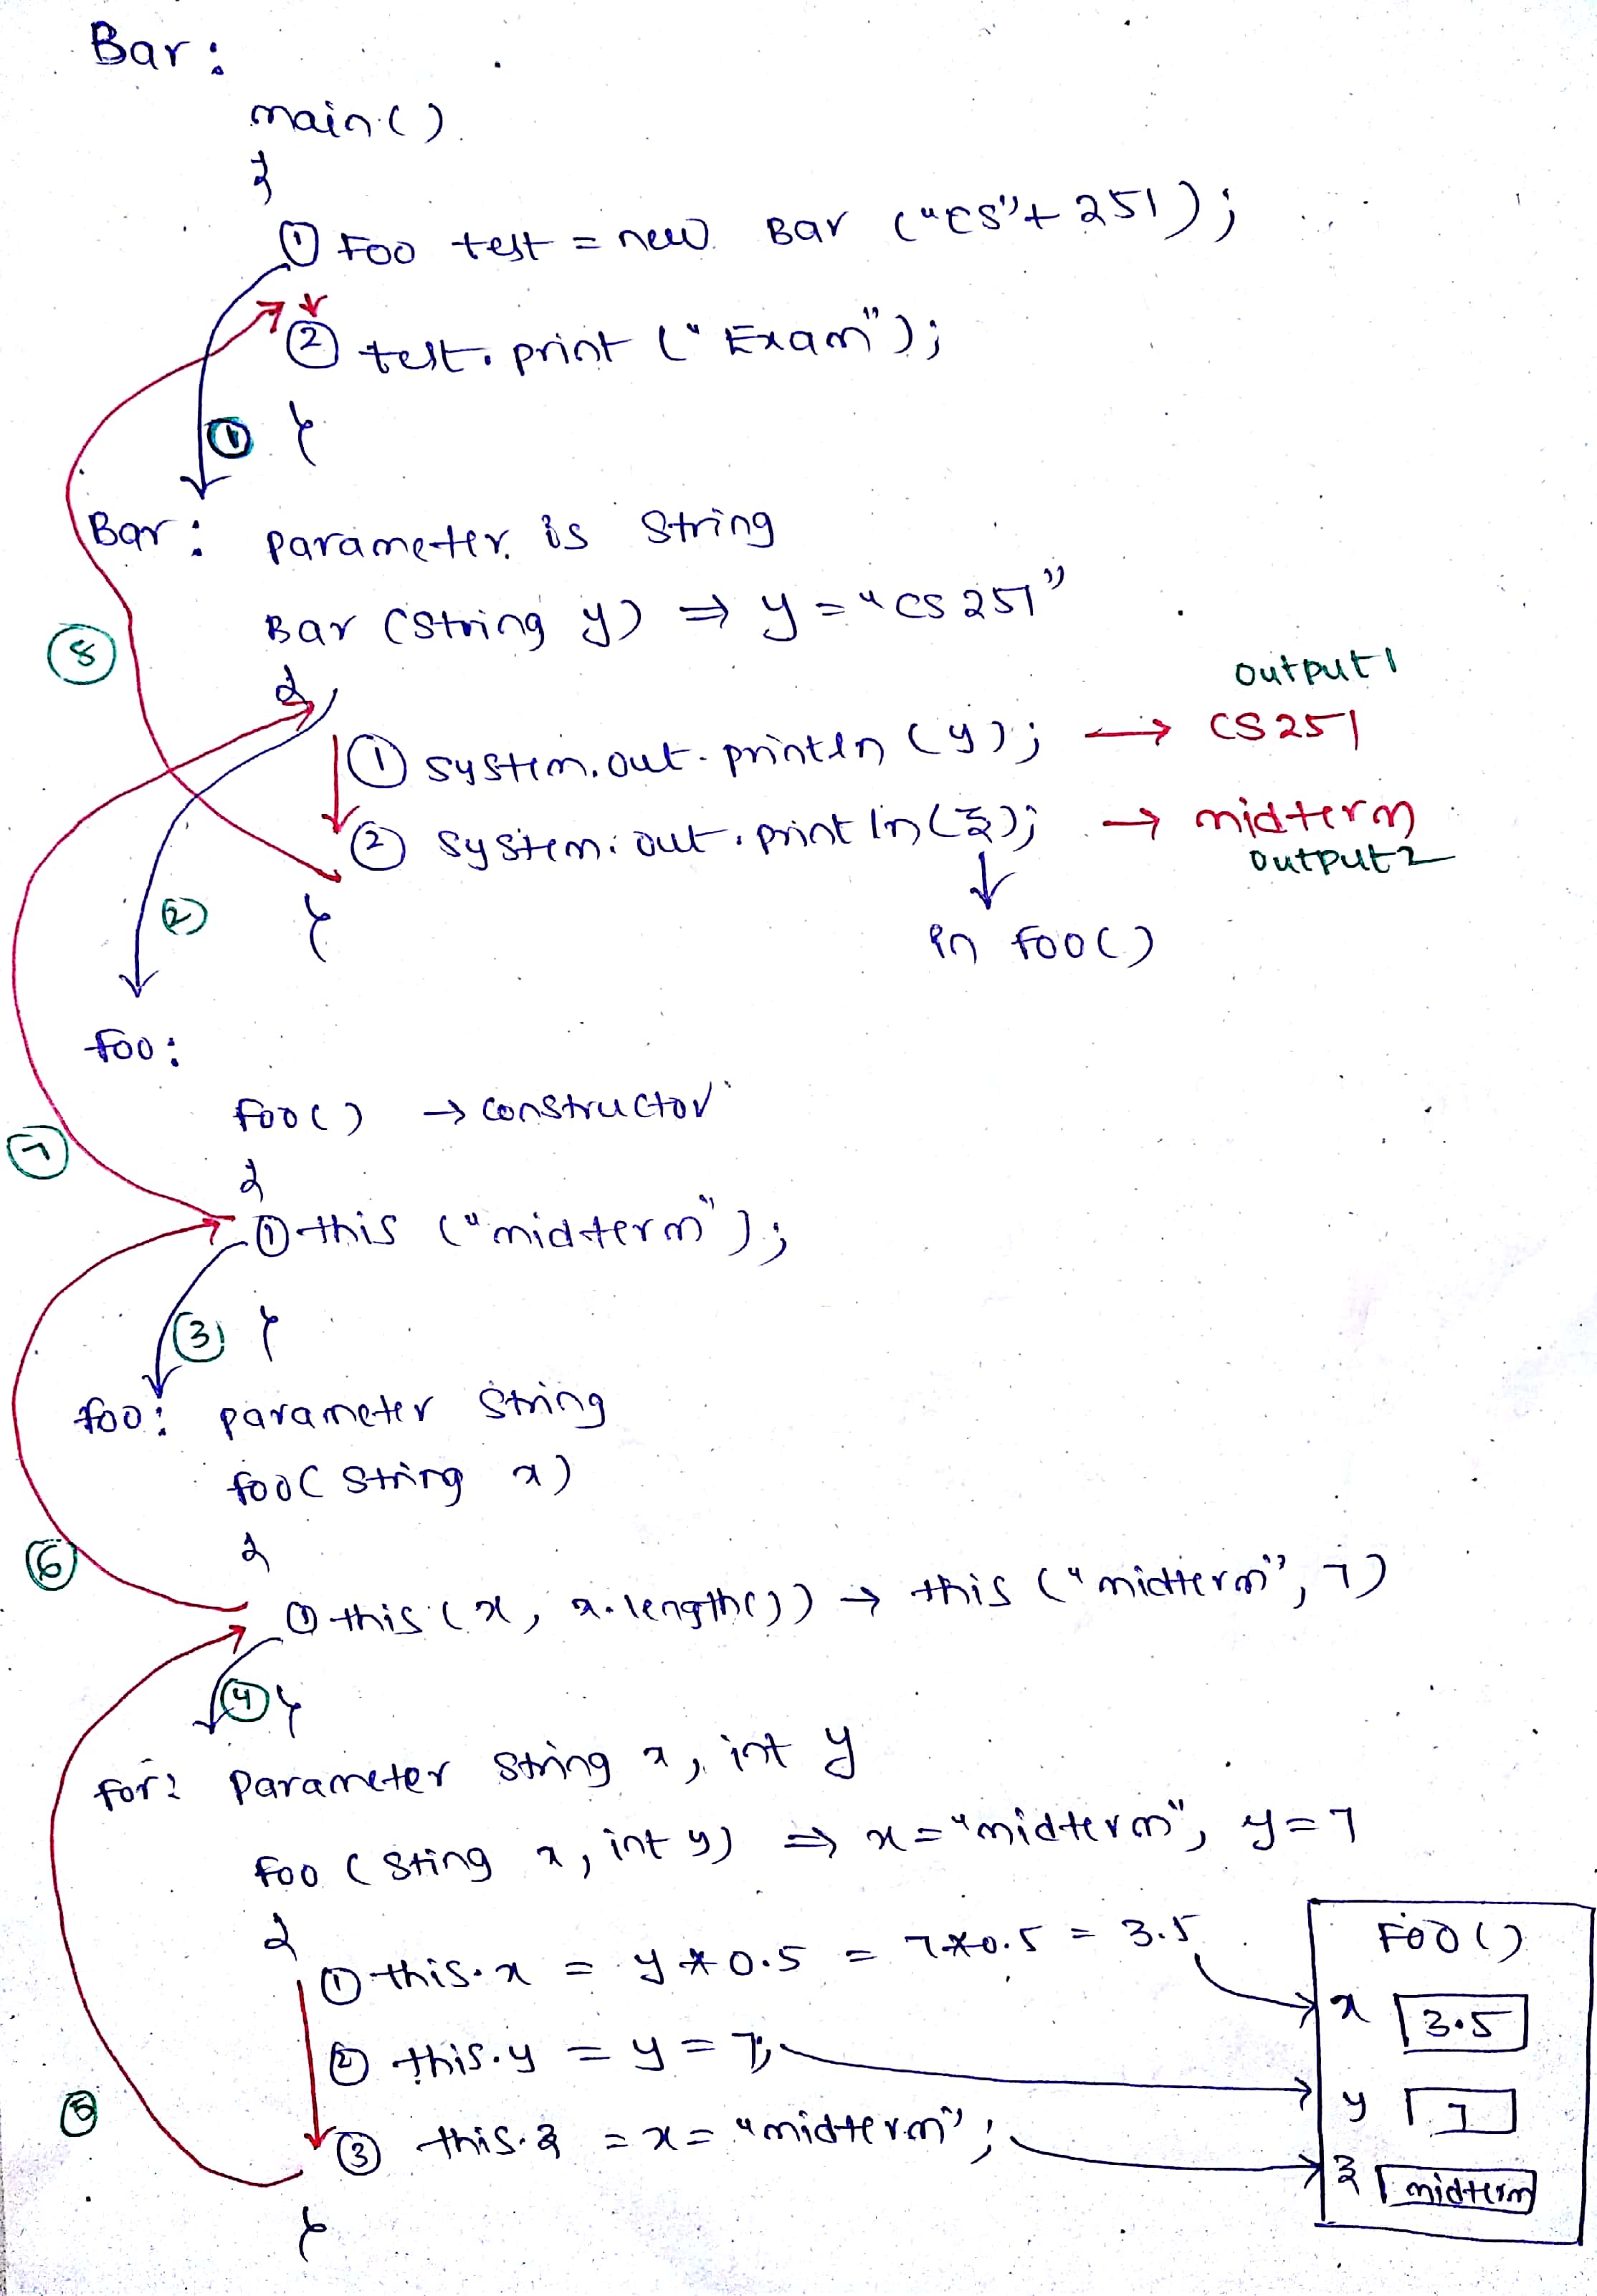 Bar :
main ()
{
① Foo test = new Bar ("CS"+ 251) ;
② test. print ("Exam") ;
① }
Bar : parameter is String
Bar (String y) ⇒ y = "CS 251"
⑧
{
output 1
① System.out.println (y) ; → CS 251
② System.out.println (z) ; → midterm
output 2
② }
↓
in foo ()
foo :
foo () → constructor
⑦
{
① this ("midterm") ;
③ }
foo : parameter String
foo ( String x )
⑥
{
① this (x, x.length()) → this ("midterm", 7)
④ }
for : Parameter String x, int y
foo ( Sting x, int y) ⇒ x = "midterm", y = 7
{
① this.x = y * 0.5 = 7*0.5 = 3.5
② this.y = y = 7;
⑤
③ this.z = x = "midterm" ;
}
FOO ()
x 3.5
y 7
z midterm